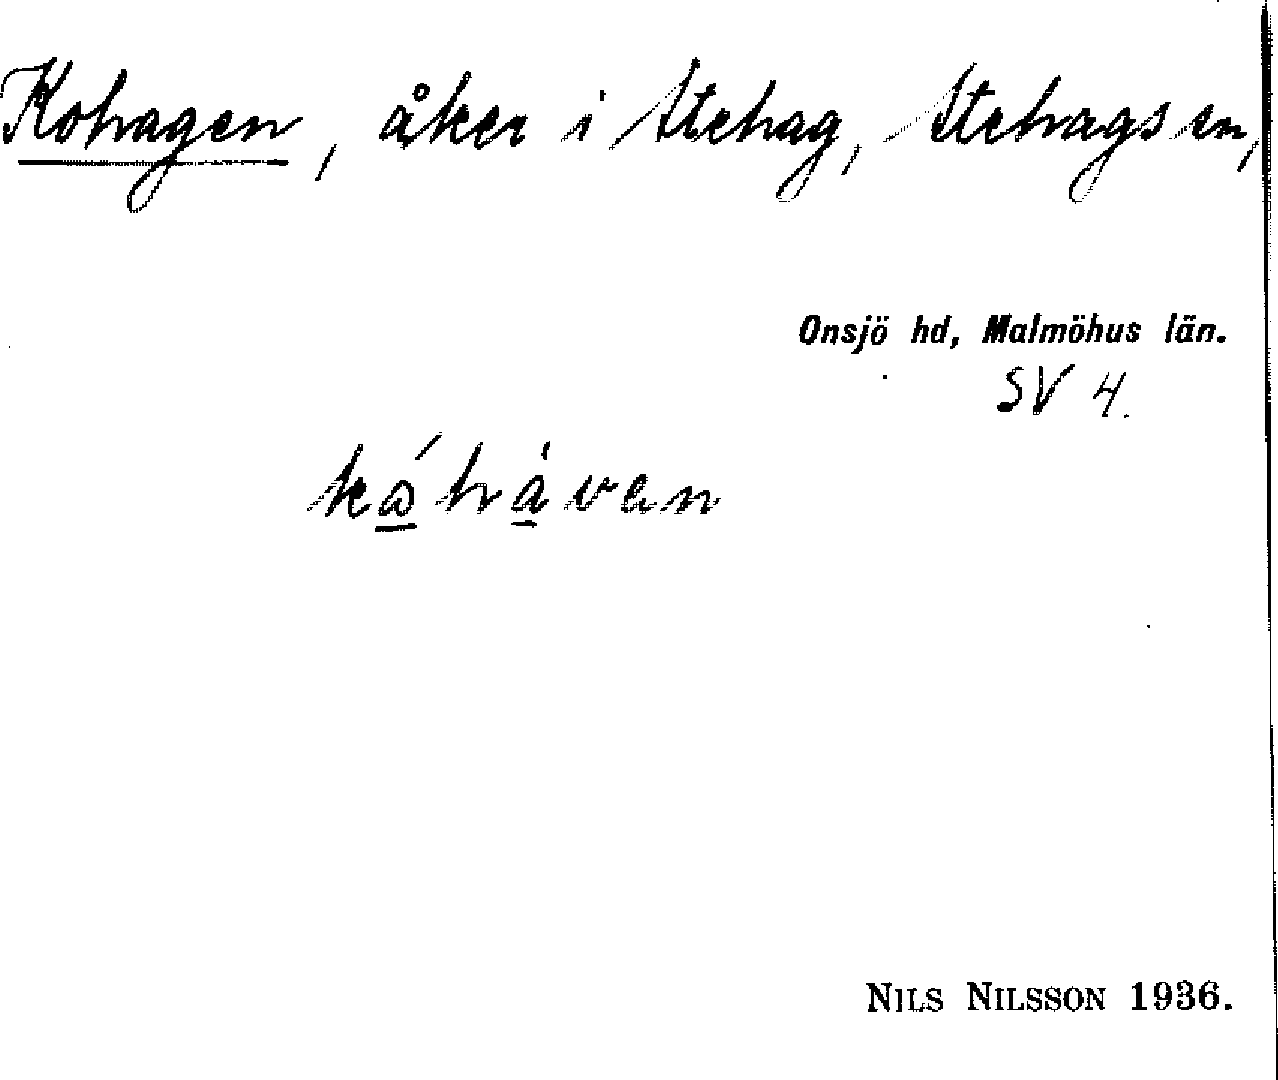 Kohagen, åker i Stehag, Stehags sn,
Onsjö hd, Malmöhus län.
SV 4.
NILS NILSSON 1936.